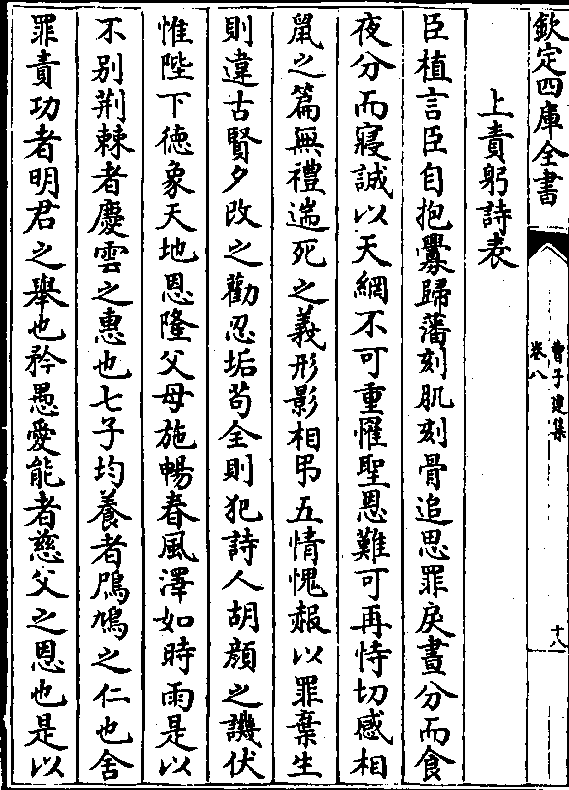 欽定四庫全書
曹子建集
卷八
十八
上責躬詩表
臣植言臣自抱釁歸藩刻肌刻骨追思罪戾晝分而食
夜分而寢誠以天網不可重罹聖恩難可再恃切感相
鼠之篇無禮遄死之義形影相弔五情愧赧以罪棄生
則違古賢夕改之勸忍垢苟全則犯詩人胡顔之譏伏
惟陛下德象天地恩隆父母施暢春風澤如時雨是以
不别荆棘者慶雲之惠也七子均養者鳲鳩之仁也舍
罪責功者明君之舉也矜愚愛能者慈父之恩也是以